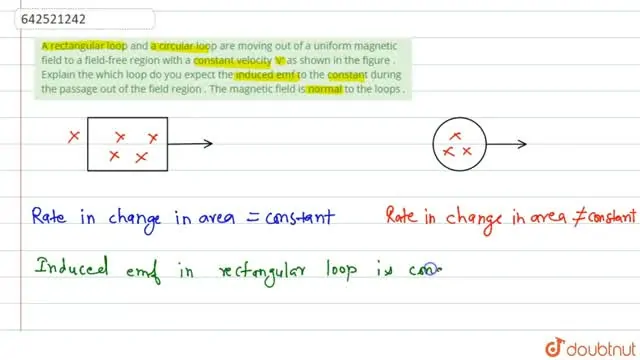 642521242
A rectangular loop and a circular loop are moving out of a uniform magnetic
field to a field-free region with a constant velocity 'V' as shown in the figure .
Explain the which loop do you expect the induced emf to the constant during
the passage out of the field region . The magnetic field is normal to the loops .
x x x x
x x x x
Rate in change in area = constant Rate in change in area ≠ constant
Induced emf in rectangular loop is con
doubtnut